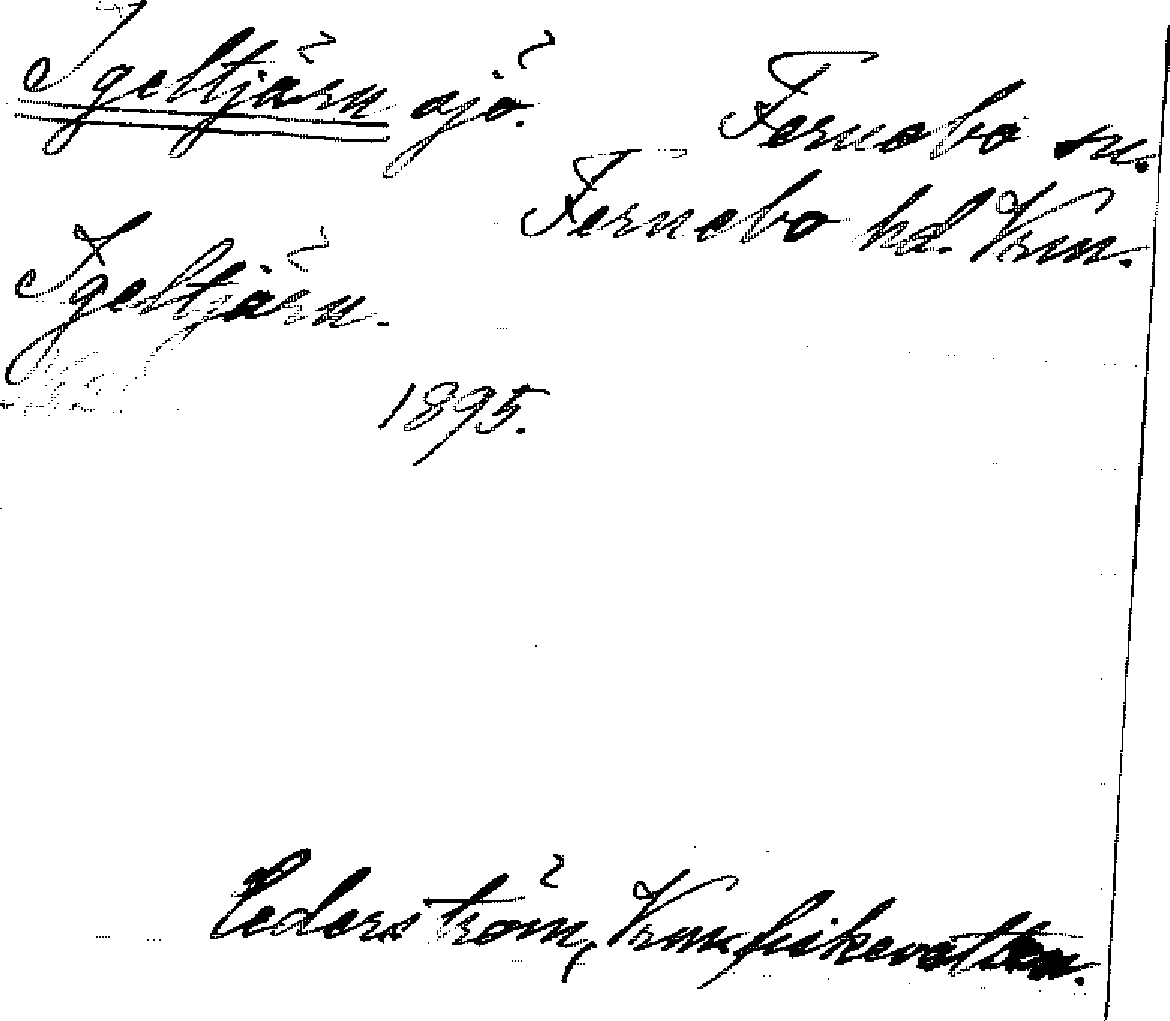 Igeltjärn sjö.
Fernebo sn.
Fernebo hd. Vrm.
Igeltjärn.
1895.
Cederström, Vrms fiskevatten.